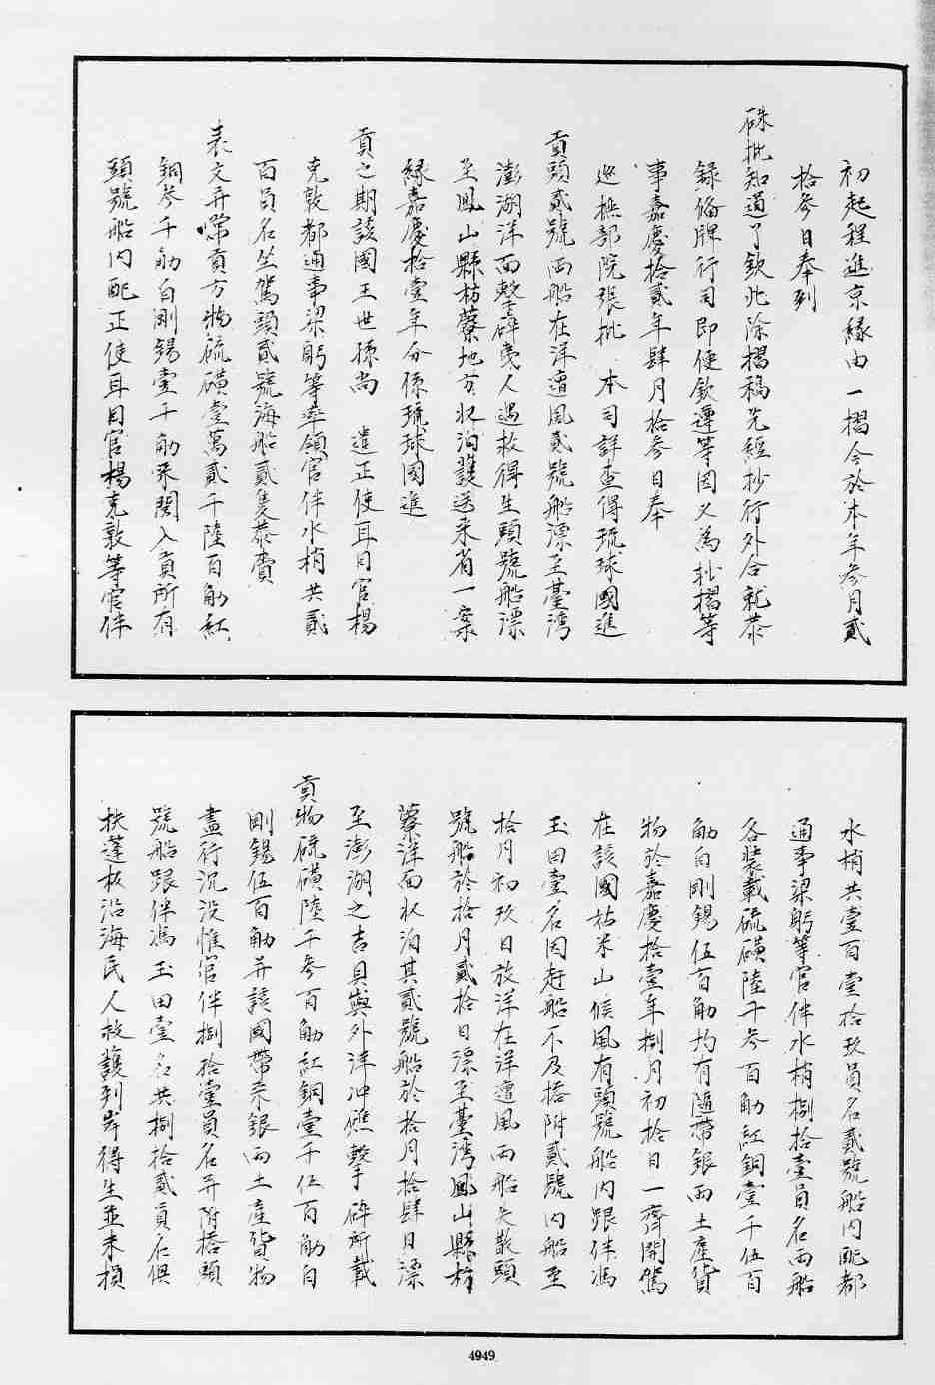 初起程進京緣由一摺今於本年參月貳
拾參日奉到
硃批知道了欽此除摺稿先經抄行外合就恭
錄偹牌行司即便欽遵等因又為報摺等
事嘉慶拾貳年肆月拾參日奉
巡撫部院張批 本司詳查得琉球國進
貢頭貳號両船在洋遭風貳號船漂至臺灣
澎湖洋面擊碎旁人過救得生頭號船漂
至鳳山縣枋藔地方收泊護送来省一案
緣嘉慶拾壹年分係琉球國進
貢之期該國王世孫尚 遣正使耳目官楊
克敦都通事梁躬等率領官伴水梢共貳
百員名坐駕頭貳號海船貳隻恭賫
表文并帶貢方物硫磺壹萬貳千陸百觔紅
銅參千觔白剛錫壹千觔来閩入貢所有
頭號船内配正使耳目官楊克敦等官伴
水梢共壹百壹拾玖員名貳號船内配都
通事梁躬等官伴水梢捌拾壹員名両船
各裝載硫磺陸千參百觔紅銅壹千伍百
觔白剛錫伍百觔均有隨帶銀両土產貨
物於嘉慶拾壹年捌月初拾日一齊開駕
在該國姑米山候風有頭號船内跟伴馮
玉田壹名因赶船不及搭附貳號内船至
拾月初玖日放洋在洋遭風両船失散頭
號船於拾月貳拾日漂至臺灣鳳山縣枋
藔洋面收泊其貳號船於拾月拾肆日漂
至澎湖之吉貝嶼外洋冲礁擊碎所載
貢物硫磺陸千參百觔紅銅壹千伍百觔白
剛錫伍百觔并該國帶来銀両土產貨物
盡行沉没惟官伴捌拾壹員名并附搭頭
號船跟伴馮玉田壹名共捌拾貳員名俱
扶蓬板沿海民人救護到岸得生並未損
4949